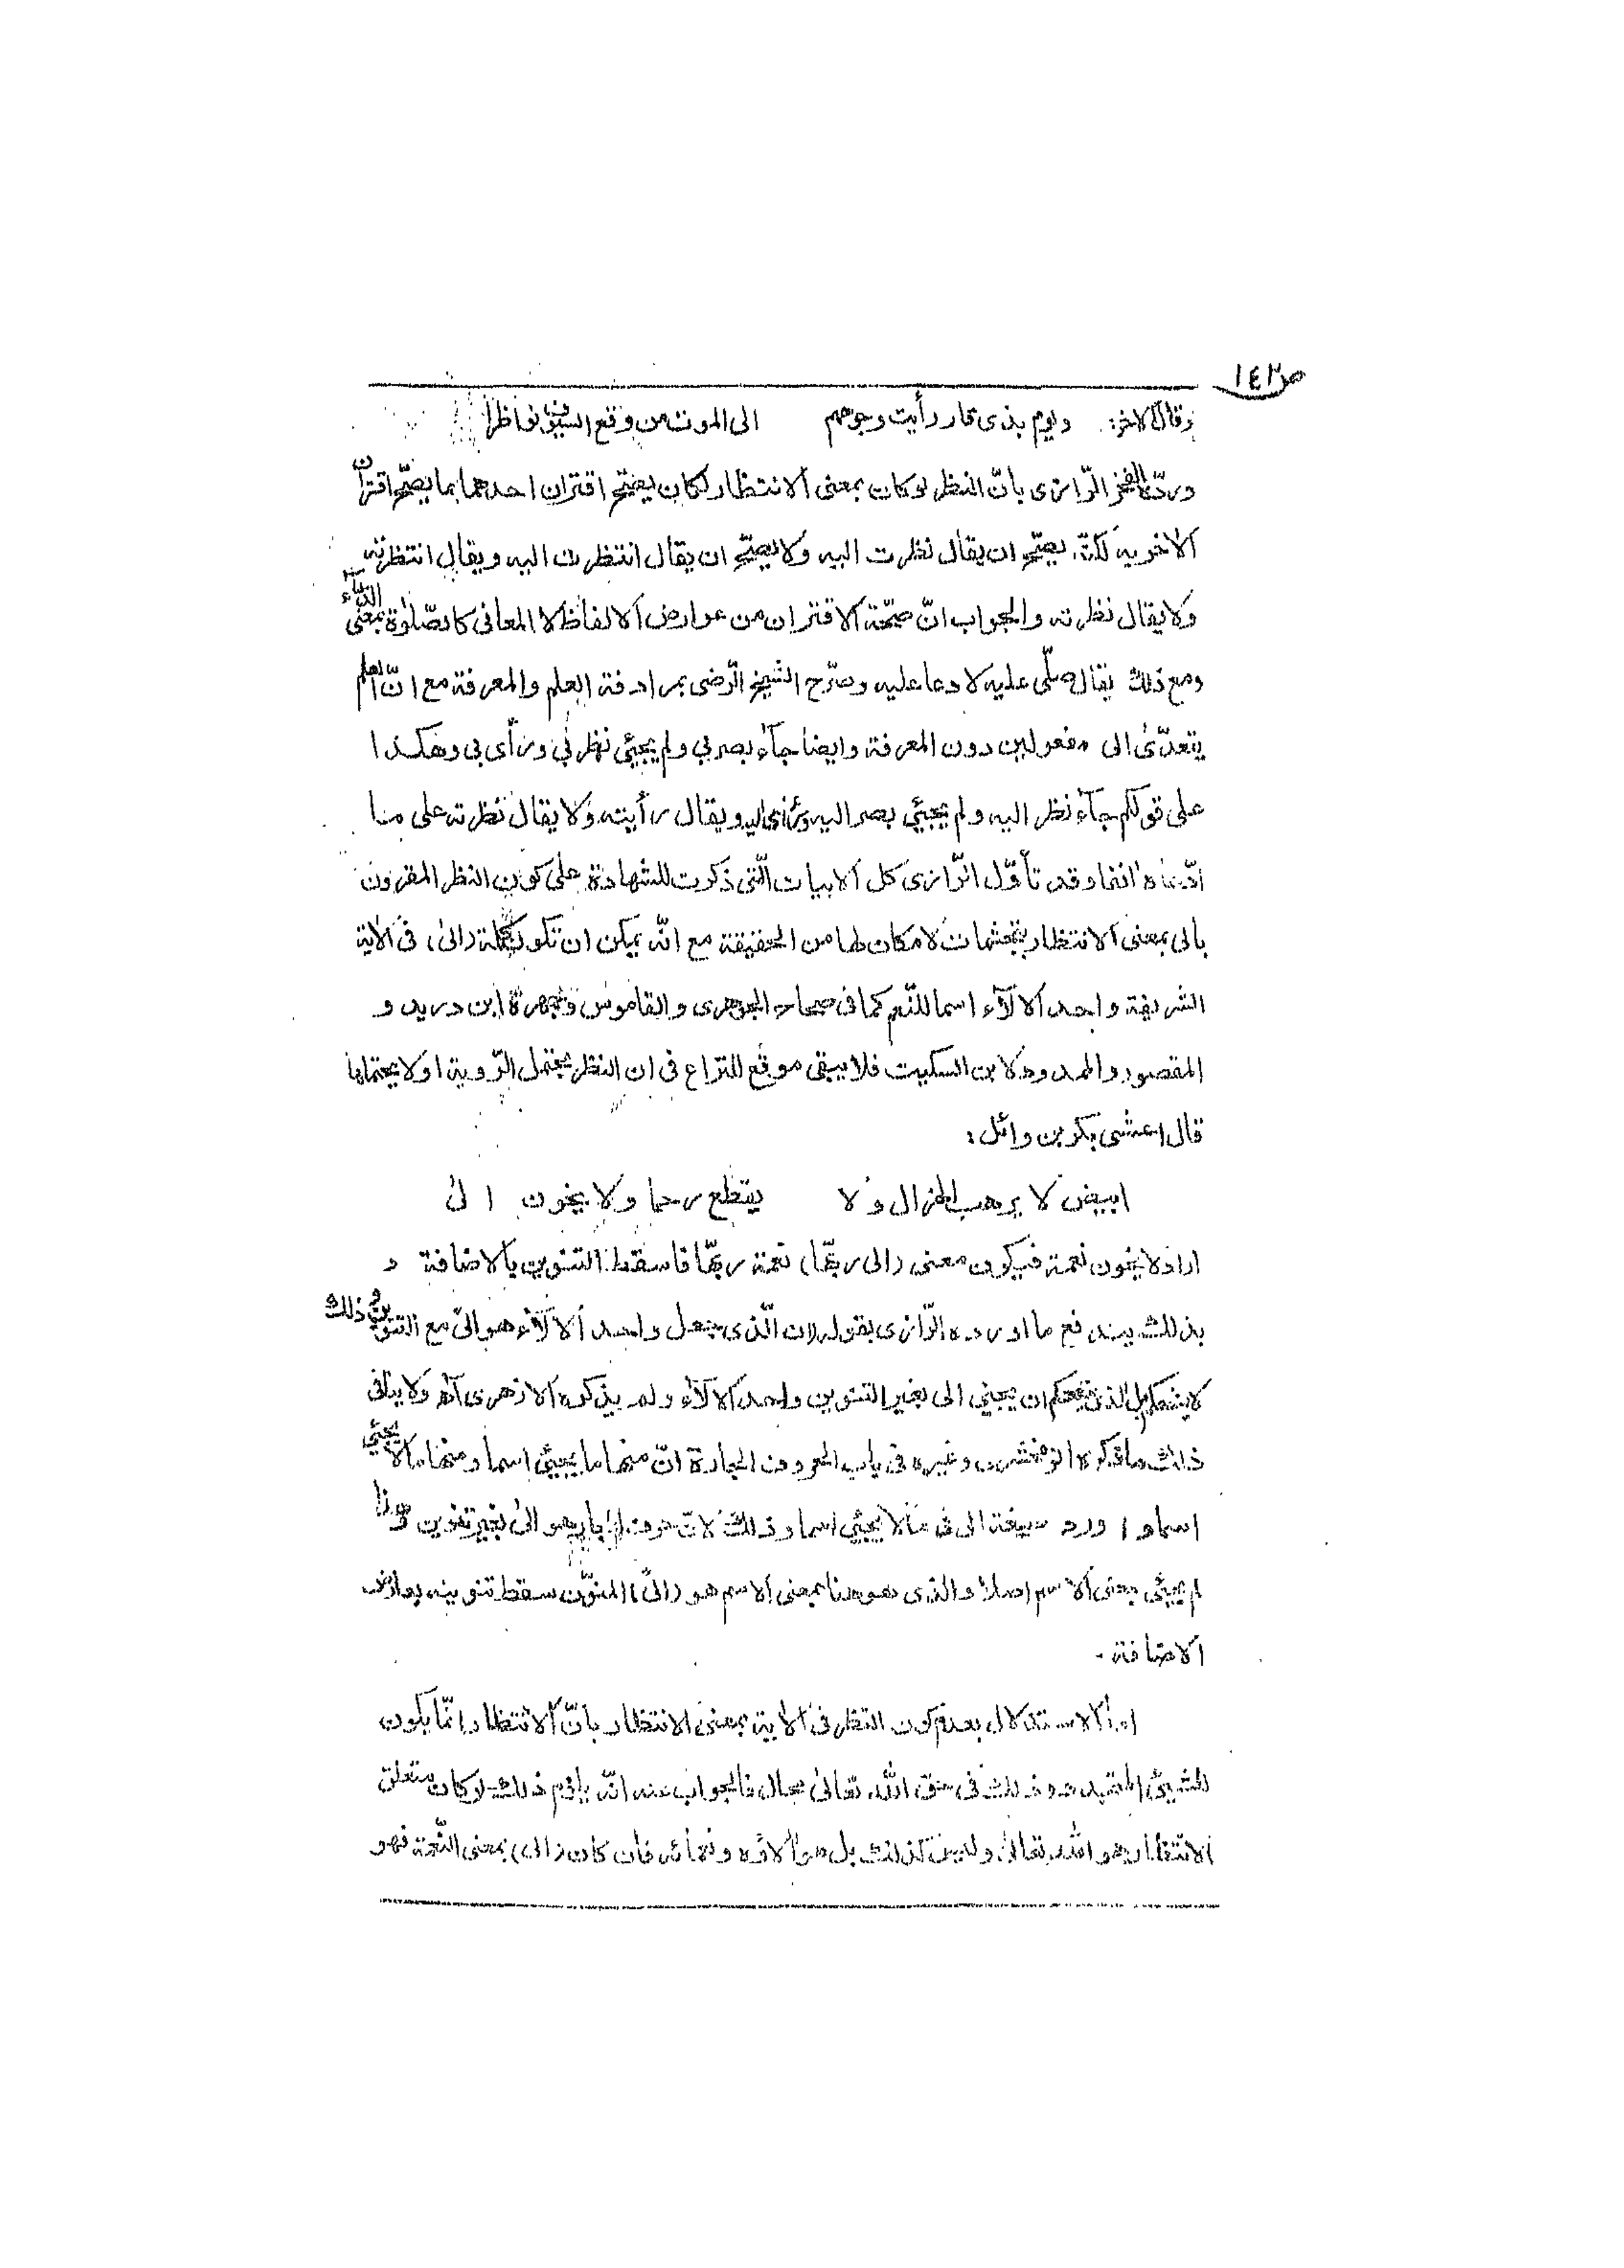 ص١٤٢
وقال الاخر: ويوم بذى قار رأيت وجوههم الى الموت من وقع السيوف نواظرا
وردّه الفخر الرّازى بانّ النظر لوكان بمعنى الانتظار لكان يصحّ اقتران احدهما بما يصحّ اقتران
الاخر به لكنّه يصحّ ان يقال نظرت اليه ولا يصحّ ان يقال انتظرت اليه ويقال انتظرته
ولا يقال نظرته والجواب انّ صحّة الاقتران من عوارض الالفاظ لا المعانى كالصّلوٰة بمعنى الدّعاء
ومع ذلك يقال صلّى عليه لا دعا عليه وصرّح الشيخ الرّضى بمرادفة العلم والمعرفة مع انّ العلم
يتعدّىٰ الى مفعولين دون المعرفة وايضا جآء بصر بي ولم يجيئ نظر بي ورأى بى وهكذا
على قولكم جآء نظر اليه ولم يجيئ بصر اليه ورأى اليه ويقال رأيته ولا يقال نظرته على ما
ادّعاه انفا وقد تأوّل الرّازى كل الابيات الّتى ذكرت للشهادة على كون النظر المقرون
بالى بمعنى الانتظار بتجشمات لا مكان لها من الحقيقة مع انّه يمكن ان تكون كلمة (الىٰ) فى الاية
الشريفة واحد الالآء اسما للنّعم كما فى صحاح الجوهرى والقاموس وجمهرة ابن دريد و
المقصور والممدود لابن السكيت فلا يبقى موقع للنزاع فى ان النظر يحتمل الرّوية او لا يحتملها
قال اعشى بكر بن وائل:
ابيض لا يرهب الهزال ولا يقطع رحما ولا يخون الىٰ
اراد لا يخون نعمة فيكون معنى (الى ربّها) نعمة ربّها فاسقط التنوين بالاضافة و
بذلك يندفع ما اورده الرّازى بقوله لان الّذى جعل واحد الالآء هو الىً مع التنوين وذلك
ان يجيئ الى بغير التنوين واحد الالآء ولم يذكره الازهرى آه ولا ينافى
ذلك ما ذكره الزمخشرى وغيره فى باب الحروف الجارة انّ منها ما يجيئ اسما ومنها ما لا يجيئ
اسما و اورد صيغة الى فى ما لا يجيئ اسما وذلك لانّ حرف الجار هو الىٰ بغير تنوين وهذا
لم يجيئ بمعنى الاسم اصلا والذى هو هنا بمعنى الاسم هو (الىً) المنوّن سقط تنوينه بعارض
الاضافة.
امّا الاستدلال بعدم كون النظر فى الاية بمعنى الانتظار بانّ الانتظار انّما يكون
للشيئ المتجدد وذلك فى حق اللّٰه تعالىٰ محال فالجواب عنه انّه يلزم ذلك لو كان متعلق
الانتظار هو اللّٰه تعالىٰ وليس كذلك بل هو الاؤه ونعمائه فان كان (الى) بمعنى النّعمة فهو